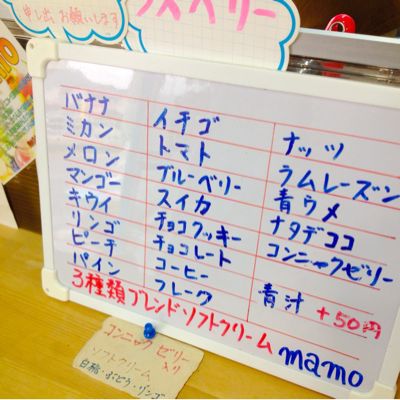 申し出 お願いします
ズベリー
バナナ
ミカン
メロン
マンゴー
キウイ
リンゴ
ピーチ
パイン
イチゴ
トマト
ブルーベリー
スイカ
チョコクッキー
チョコレート
コーヒー
フレーク
ナッツ
ラムレーズン
青ウメ
ナタデココ
コンニャクゼリー
青汁 +50円
3種類ブレンドソフトクリーム
mamo
コンニャク ゼリー
入り
ソフトクリーム
白桃・ぶどう・リンゴ